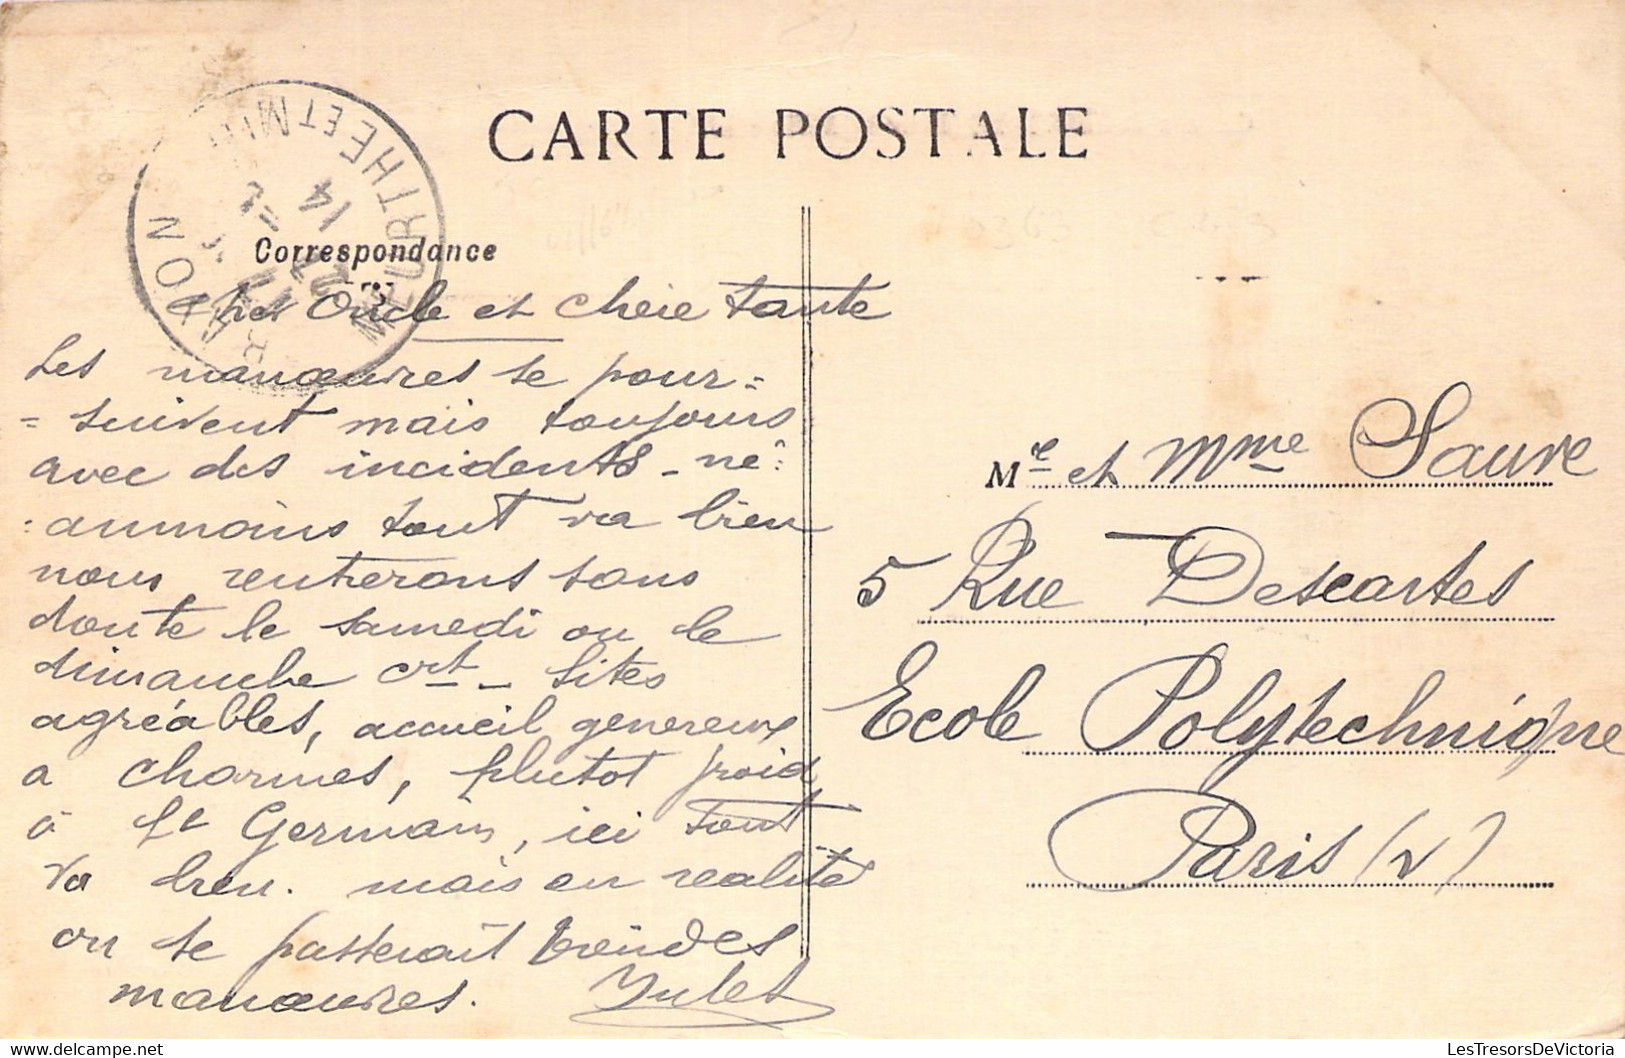 CARTE POSTALE
Correspondance
MEURTHE ET M
BAYON
14
Cher Oncle et chère tante
Les manœuvres se pour=
=suivent mais toujours
avec des incidents - né=
=anmoins tout va bien
nous rentrerons sans
doute le samedi ou le
dimanche crt - Sites
agréables, accueil genereux
a Charmes, plutot froid
à St Germain, ici tout
va bien. mais en realité
on se passerait bien des
manœuvres. Jules
Mr et Mme Sauve
5 Rue Descartes
Ecole Polytechnique
Paris (V)
LesTresorsDeVictoria